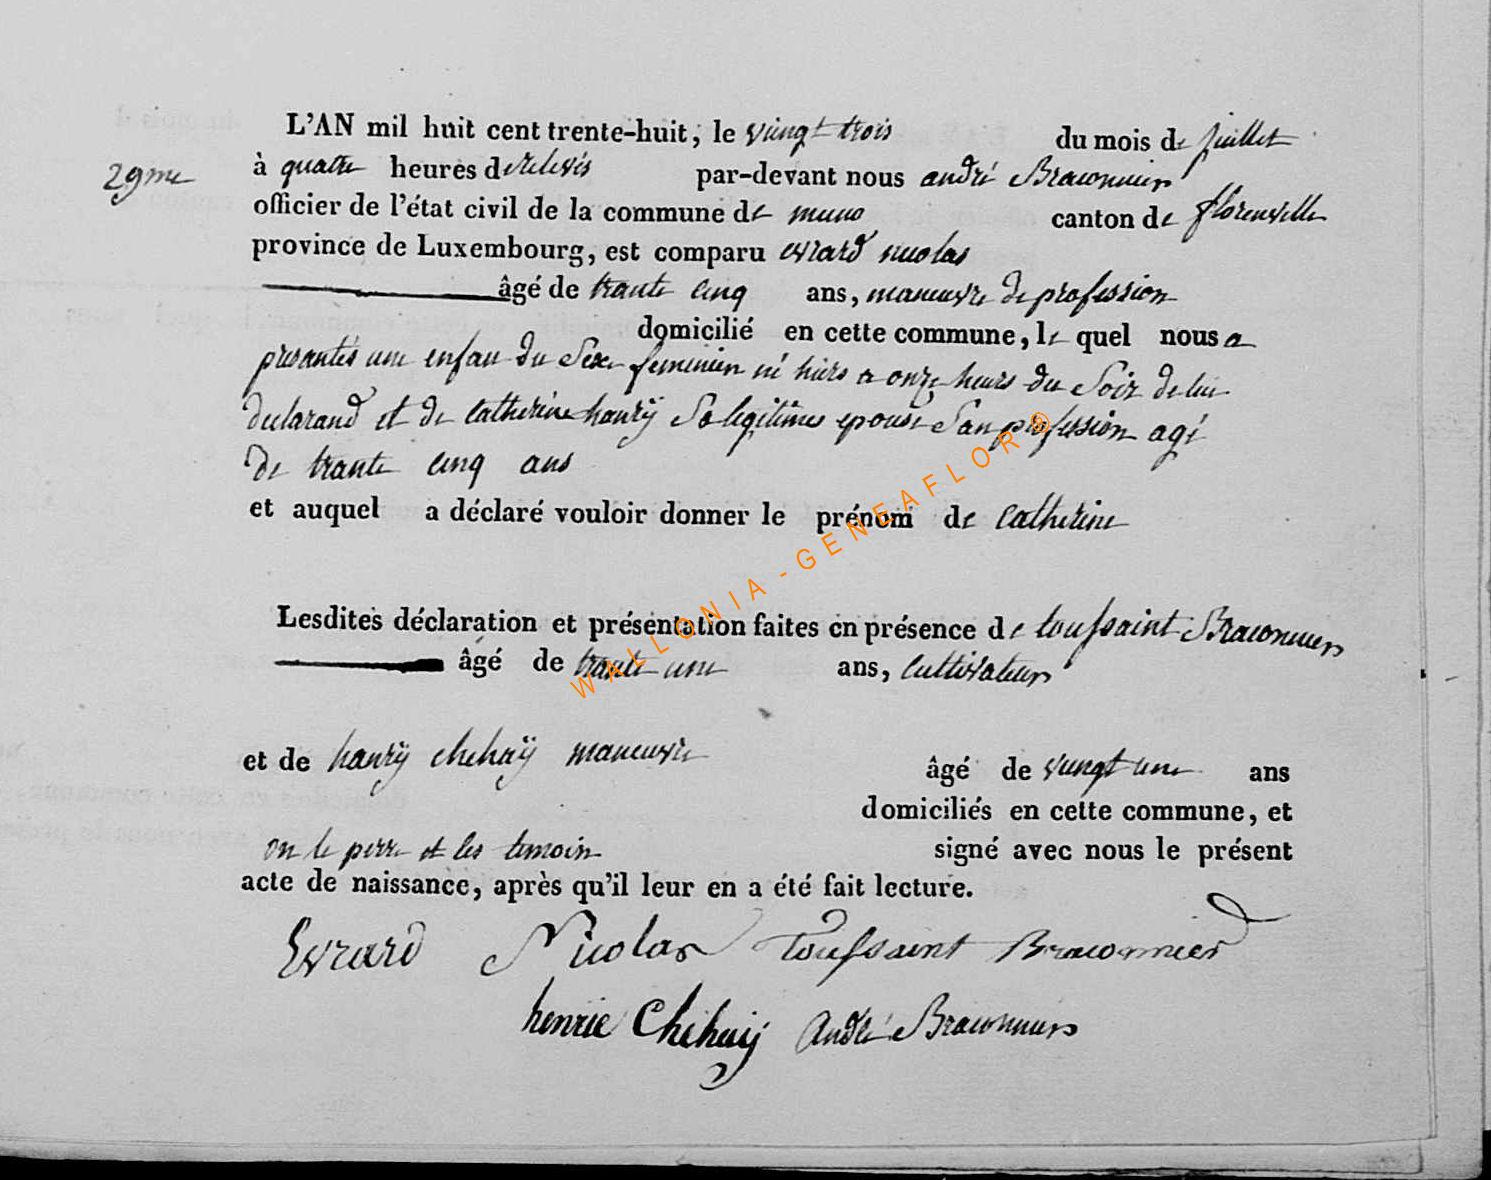 L'AN mil huit cent trente-huit, le vingt trois du mois de juillet
29me
à quatre heures de relevés par-devant nous andré Braconnier
officier de l'état civil de la commune de muno canton de florenville
province de Luxembourg, est comparu evrard nicolas
âgé de trante cinq ans, maneuvre de profession
domicilié en cette commune, le quel nous a
presantés une enfan du Sexe feminin né hiers a onze heurs du Soir de lui
declarand et de Catherine hanrÿ Sa legitimes epouse San profession agé
de trante cinq ans
et auquel a déclaré vouloir donner le prénom de Catherine
Lesdites déclaration et présentation faites en présence de toussaint Braconnier
âgé de trante une ans, Cultivateur
et de hanrÿ chehaÿ maneuvre âgé de vingt une ans
domiciliés en cette commune, et
on le perre et les temoin signé avec nous le présent
acte de naissance, après qu'il leur en a été fait lecture.
Evrard Nicolas toussaint Braconnier
henrie Chehaij André Braconnier
WALLONIA-GENEAFLOR®